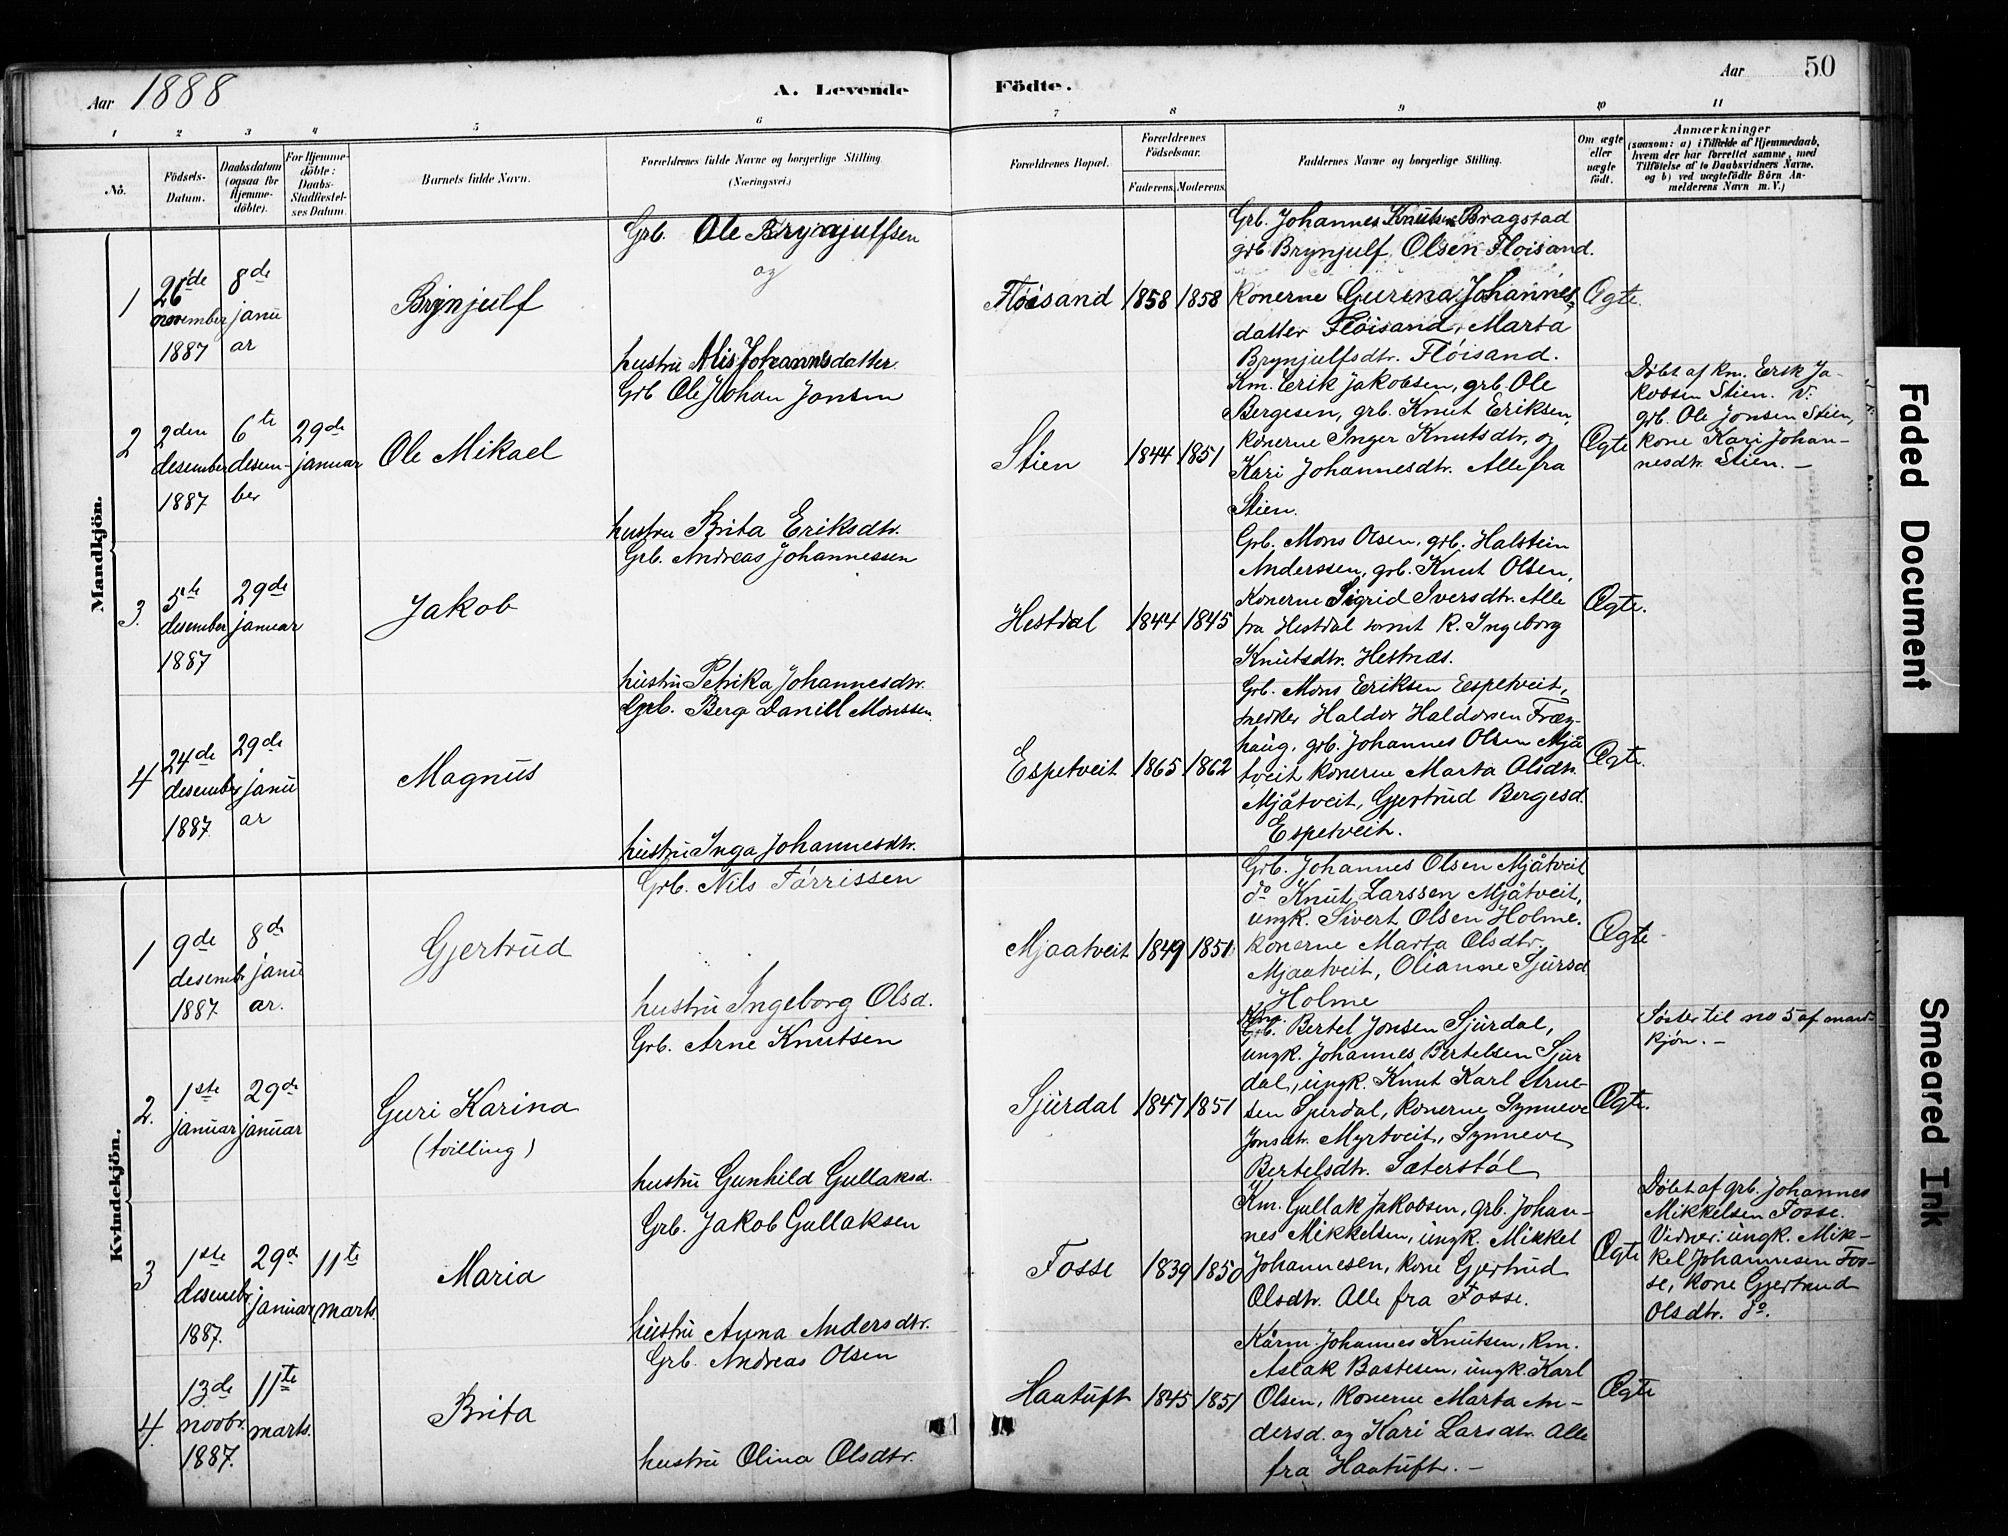 Aar 1888
A. Levende
Födte.
Aar
50
1
2
3
4
5
6
7
8
9
10
11
No.
Födsels-
Datum.
Daabsdatum
(ogsaa for
Hjemme-
döbte).
For Hjemme-
döbte:
Daabs-
Stadfæstel-
ses Datum.
Barnets fulde Navn.
Forældrenes fulde Navne og borgerlige Stilling.
(Næringsvei.)
Forældrenes Bopæl.
Forældrenes
Födselsaar.
Faderens.
Moderens.
Faddernes Navne og borgerlige Stilling.
Om ægte
eller
uægte
födt.
Anmærkninger
(saasom: a) i Tilfælde af Hjemmedaab,
hvem der har forrettet samme, med
Tilföielse af to Daabsvidners Navne,
og b) ved uægtefödte Börn An-
melderens Navn m. V.)
Mandkjön.
1
26de
november
1887
8de
janu
ar
Brynjulf
Grb. Ole Brynjulfsen
og
hustru Alis Johannesdatter.
Flöisand
1858
1858
Grb. Johannes Knutsen Bragstad
grb. Brynjulf Olsen Flöisand.
konerne Gurina Johannes-
datter Flöisand, Marta
Brynjulfsdtr. Flöisand.
Ægte.
2
2den
desember
1887
6te
desem-
ber
29de
januar
Ole Mikael
Grb Ole Johan Jonsen
hustru Brita Eriksdtr.
Stien
1844
1851
Km. Erik Jakobsen, grb. Ole
Bergesen, grb. Knut Eriksen,
konerne Inger Knutsdtr, og
Kari Johannesdtr. Alle fra
Stien.
Ægte
Döbt af km. Erik Ja-
kobsen Stien. V:
grb. Ole Jonsen Stien,
kone Kari Johan-
nesdtr. Stien. —
3.
5te
desember
1887
29de
januar
Jakob
Grb. Andreas Johannessen
hustru Petrika Johannesdtr.
Hestdal
1844
1845
Grb. Mons Olsen, grb. Halstein
Anderssen, grb. Knut Olsen,
Konerne Sigrid Iversdtr. Alle
fra Hestdal samt K. Ingeborg
Knutsdtr. Hestnæs.
Ægte.
4
24de
desember
1887
29de
janu
ar
Magnus
Grb. Berge Daniel Monssen
hustru Inga Johannesdtr.
Espetveit
1865
1862
Grb. Mons Eriksen Espetveit,
snedker Haldor Haldorsen Fræy-
haug, grb. Johannes Olsen Mjå
tveit konerne Marta Olsdtr.
Mjåtveit, Gjertrud Bergesd.
Espetveit.
Ægte.
Kvindekjön.
1
9de
desembr
1887
8de
janu
ar.
Gjertrud
Grb. Nils Törrissen
hustru Ingeborg Olsd.
Mjaatveit
1849
1851
Grb. Johannes Olsen Mjåtveit
do Knut Larssen Mjåtveit,
ungk. Sivert Olsen Holme.
konerne Marta Olsdtr.
Mjaatveit, Olianne Sjursd
Holme
Ægte
2.
1ste
januar
29de
januar
Guri Karina
(tvilling)
Grb. Arne Knutsen
hustru Gunhild Gullaksd.
Sjurdal
1847
1851
Bertel Jonsen Sjurdal,
ungk. Johannes Bertelsen Sjur
dal, ungk. Knut Karl Arne-
sen Sjurdal, konerne Synneve
Jonsdtr. Myrtveit, Synneve
Bertelsdtr. Sæterstöl
Ægte.
Söster til no 5 af mand-
kjön. —
3
1ste
desembr.
1887.
29d
januar
11te
marts.
Maria
Grb. Jakob Gullaksen
hustru Anna Andersdtr.
Fosse
1839
1850
Km. Gullak Jakobsen, grb. Johan-
nes Mikkelsen, ungk. Mikkel
Johannesen, kone Gjertrud
Olsdtr. Alle fra Fosse.
Ægte
Döbt af grb. Johannes
Mikkelsen Fosse.
Vidner: ungk. Mik-
kel Johannesen Fos-
se, kone Gjertrud
Olsdtr. do.
4.
13de
novbr.
1887.
11te
marts.
Brita
Grb. Andreas Olsen
hustru Olina Olsdtr.
Haatuft
1845
1851
Kårm Johannes Knutsen, km.
Aslak Bastesen, ungk. Karl
Olsen, konerne Marta An-
dersd. og Kari Larsdtr. Alle
fra Haatuft. —
Ægte
Faded Document
Smeared Ink